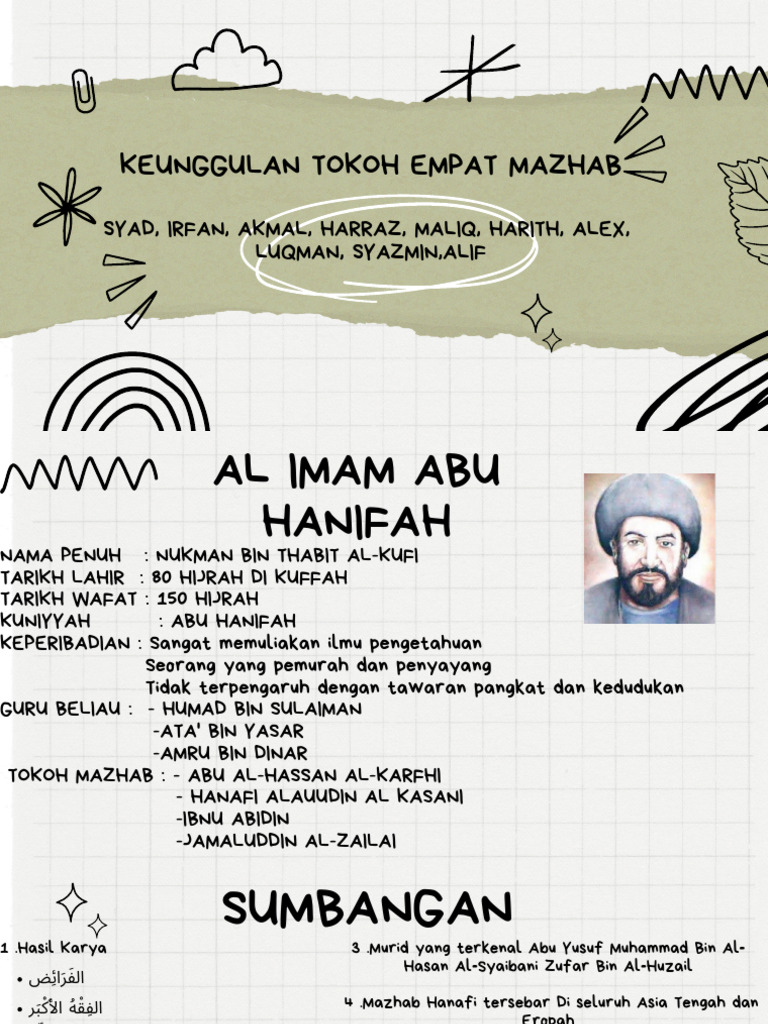 KEUNGGULAN TOKOH EMPAT MAZHAB
SYAD, IRFAN, AKMAL, HARRAZ, MALIQ, HARITH, ALEX,
LUQMAN, SYAZMIN,ALIF
AL IMAM ABU
HANIFAH
NAMA PENUH : NUKMAN BIN THABIT AL-KUFI
TARIKH LAHIR : 80 HIJRAH DI KUFFAH
TARIKH WAFAT : 150 HIJRAH
KUNIYYAH : ABU HANIFAH
KEPERIBADIAN : Sangat memuliakan ilmu pengetahuan
Seorang yang pemurah dan penyayang
Tidak terpengaruh dengan tawaran pangkat dan kedudukan
GURU BELIAU : - HUMAD BIN SULAIMAN
-ATA' BIN YASAR
-AMRU BIN DINAR
TOKOH MAZHAB : - ABU AL-HASSAN AL-KARFHI
- HANAFI ALAUUDIN AL KASANI
-IBNU ABIDIN
-JAMALUDDIN AL-ZAILAI
SUMBANGAN
1 .Hasil Karya
• الفَرَائِض
• الفِقْهُ الأَكْبَر
3 .Murid yang terkenal Abu Yusuf Muhammad Bin Al-
Hasan Al-Syaibani Zufar Bin Al-Huzail
4 .Mazhab Hanafi tersebar Di seluruh Asia Tengah dan
Eropah